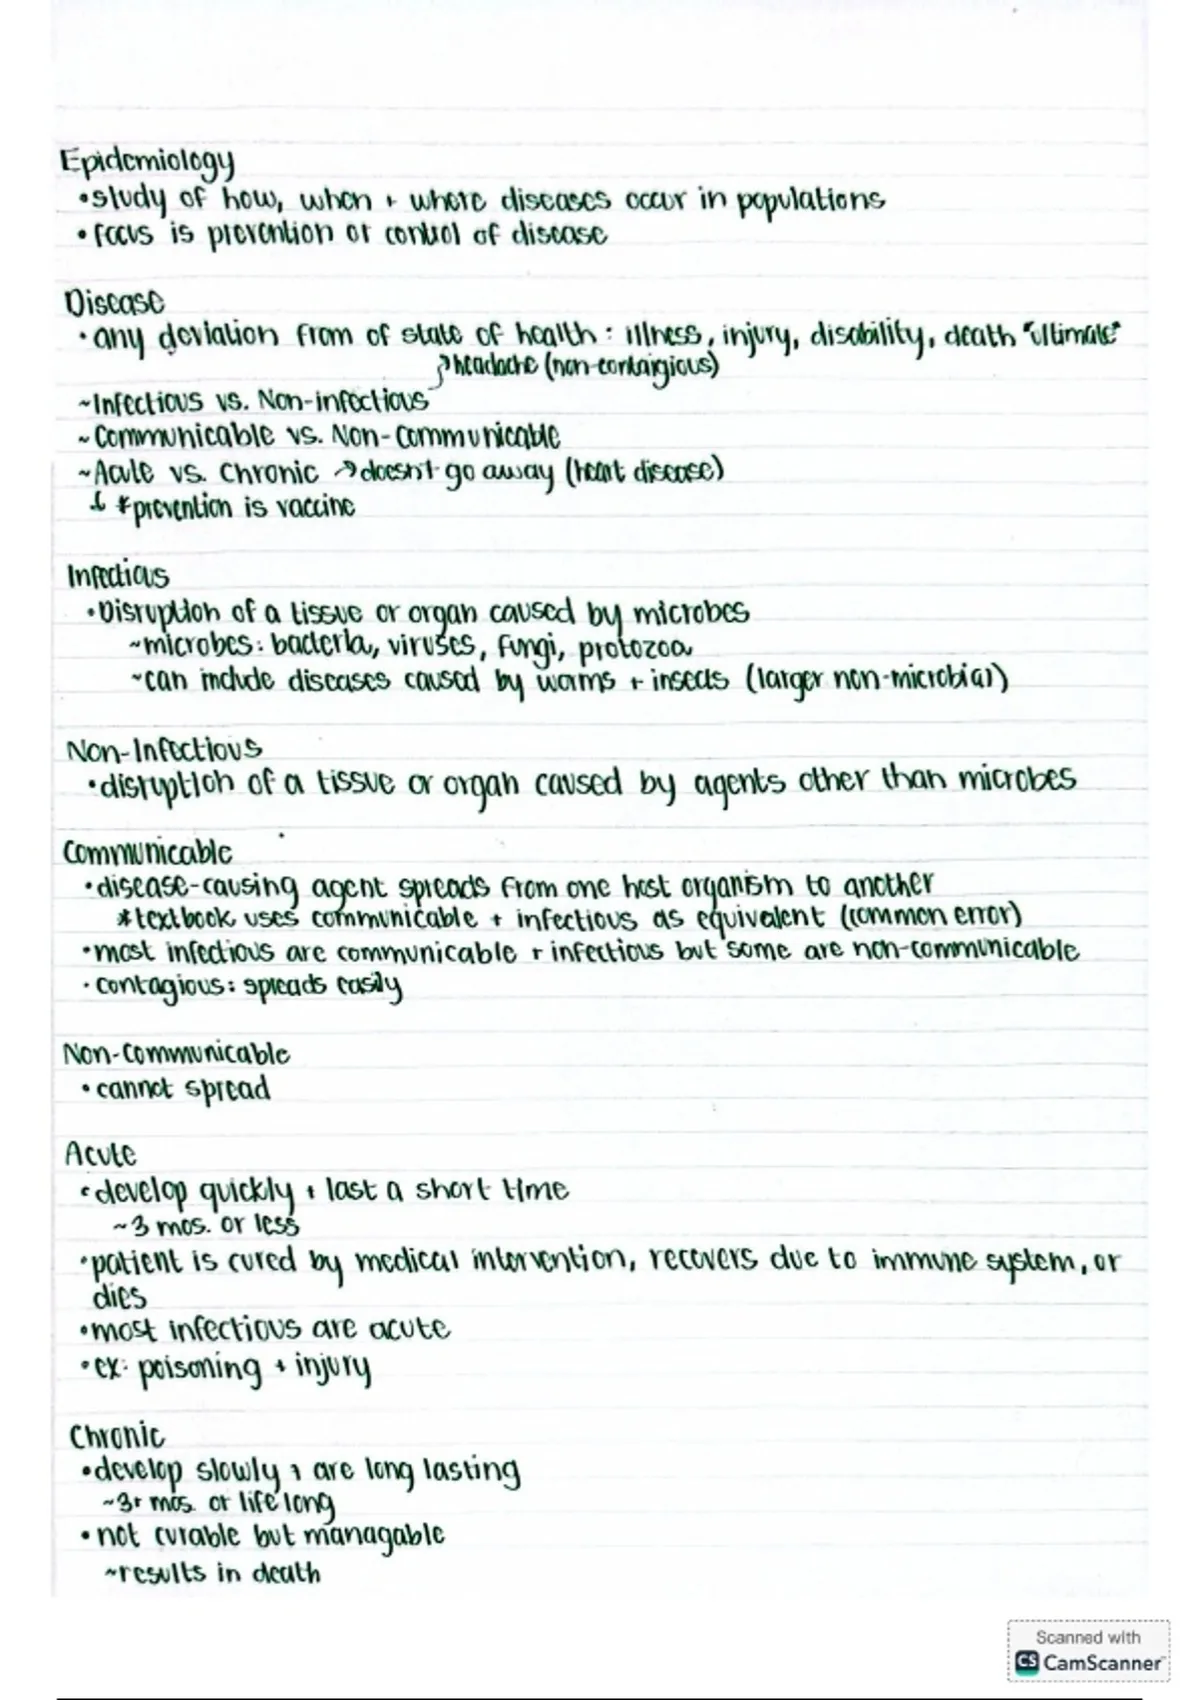 Epidemiology
•study of how, when + where diseases occur in populations
•focus is prevention or control of disease
Disease
•any deviation from of state of health: illness, injury, disability, death "ultimate"
↗headache (non-contaigious)
~Infectious vs. Non-infectious
~Communicable vs. Non-Communicable
~Acute vs. Chronic →doesn't go away (heart disease)
↓ *prevention is vaccine
Infectious
•Disruption of a tissue or organ caused by microbes
~microbes: bacteria, viruses, fungi, protozoa
~can include diseases caused by worms + insects (larger non-microbial)
Non-Infectious
•disruption of a tissue or organ caused by agents other than microbes
Communicable
•disease-causing agent spreads from one host organism to another
*textbook uses communicable + infectious as equivalent (common error)
•most infectious are communicable + infectious but some are non-communicable
•contagious: spreads easily
Non-Communicable
•cannot spread
Acute
•develop quickly + last a short time
~3 mos. or less
•patient is cured by medical intervention, recovers due to immune system, or
dies
•most infectious are acute
•ex: poisoning + injury
Chronic
•develop slowly + are long lasting
~3+ mos. or life long
•not curable but managable
~results in death
Scanned with
CS CamScanner